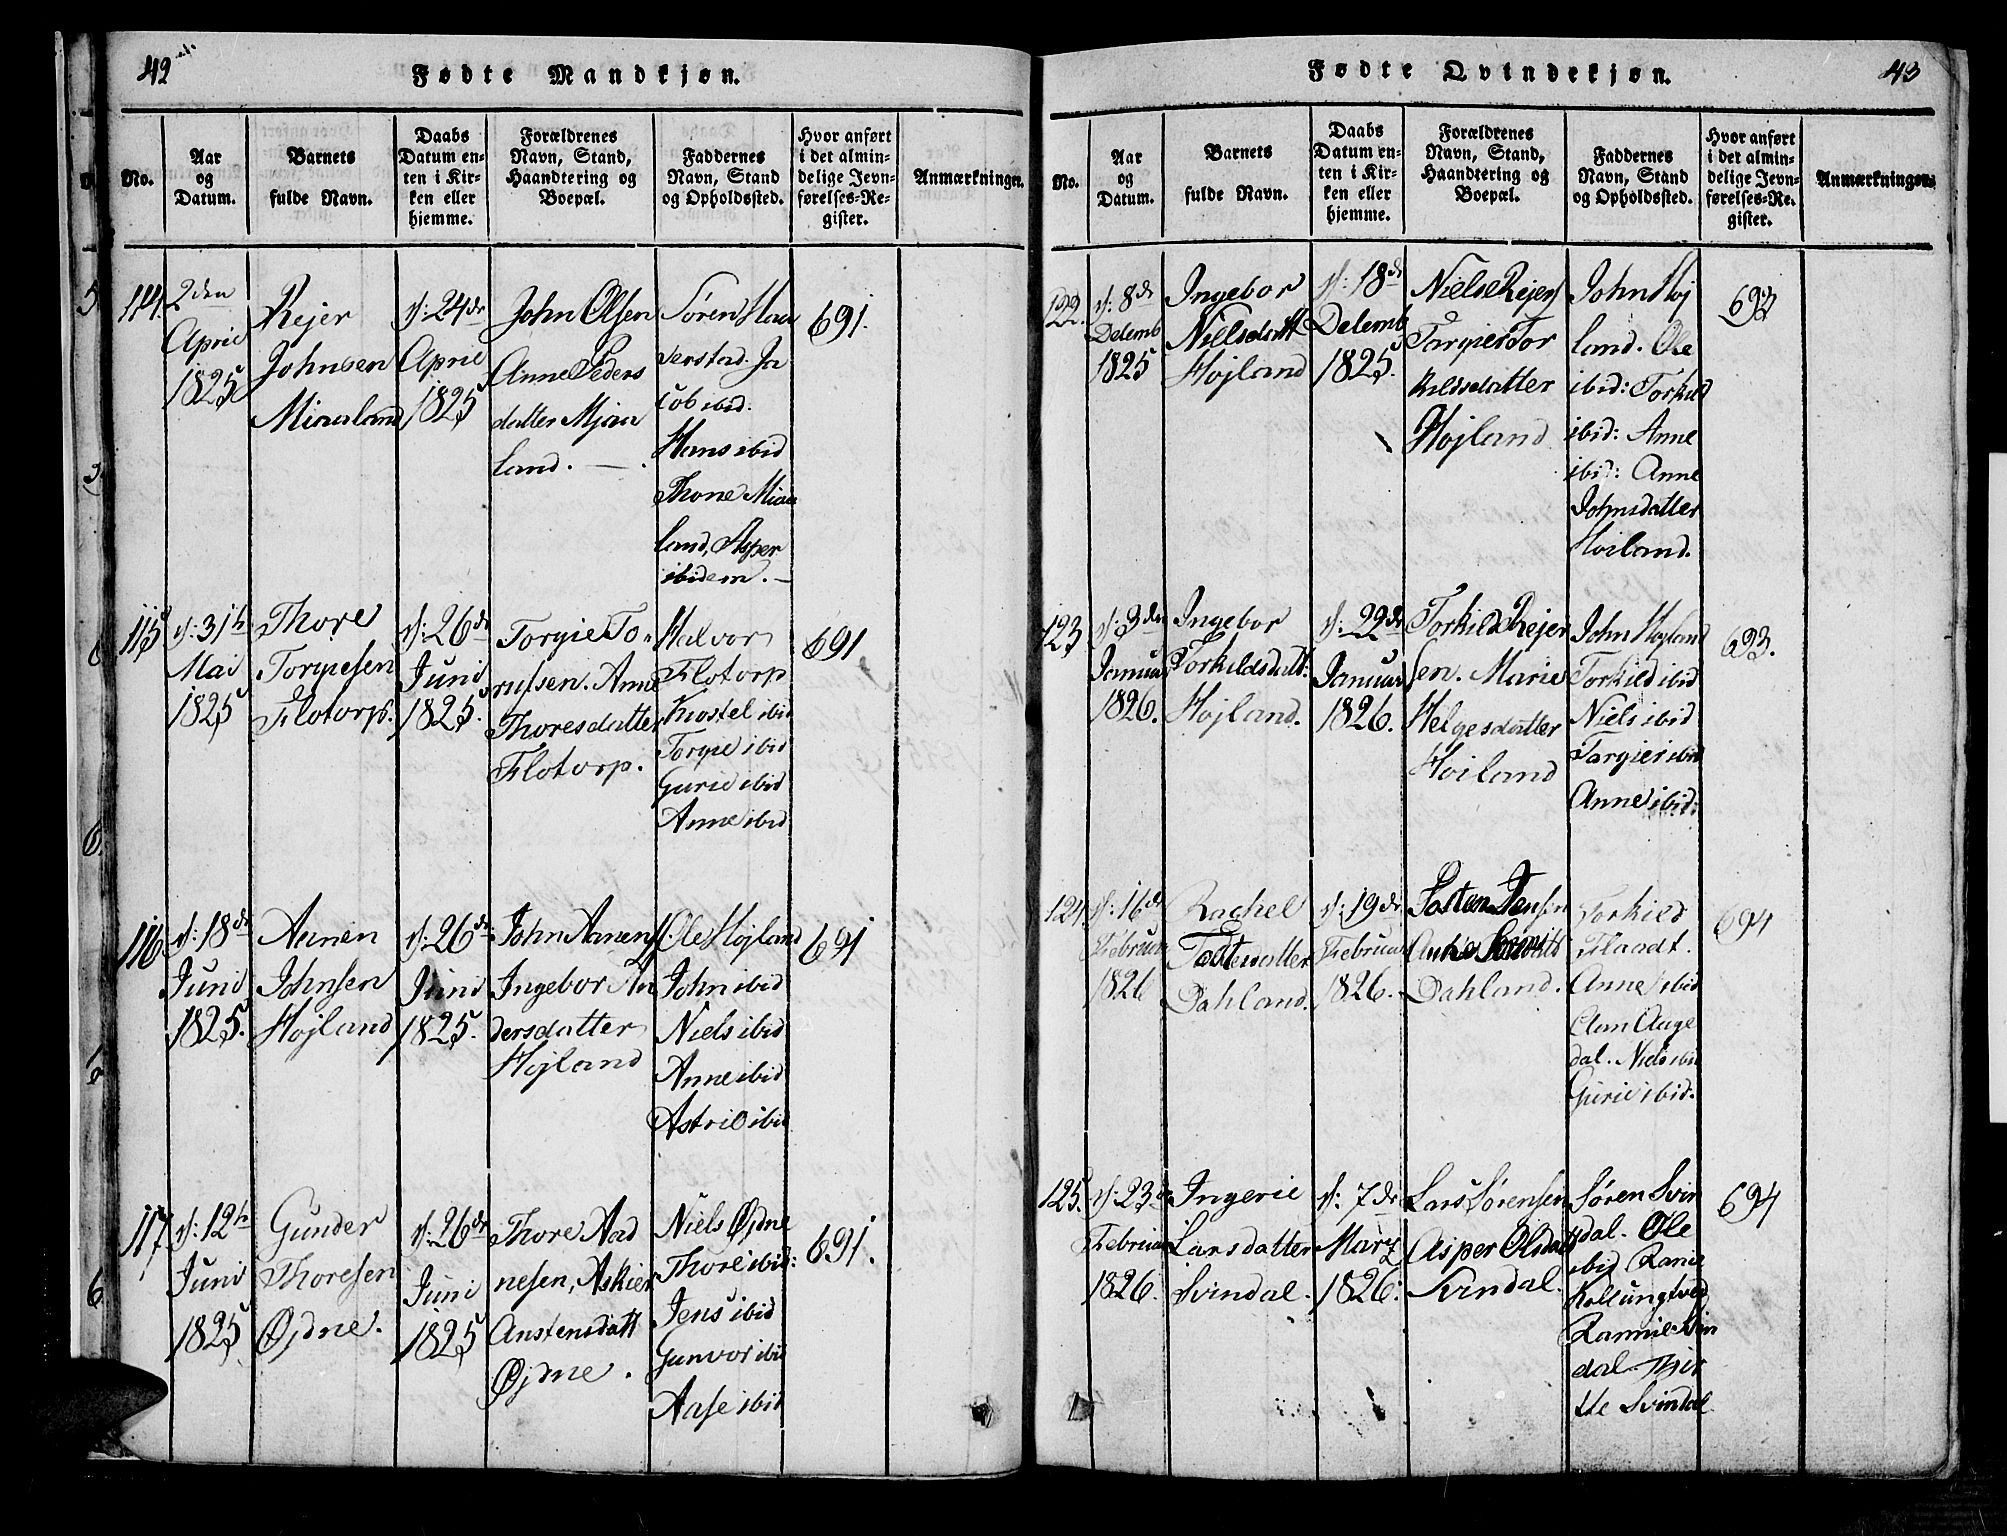 42
Fødte Mandkjøn.
No.
Aar
og
Datum.
Barnets
fulde Navn.
Daabs
Datum en-
ten i Kir-
ken eller
hjemme.
Forældrenes
Navn, Stand,
Haandtering og
Boepæl.
Faddernes
Navn, Stand
og Opholdssted.
Hvor anført
i det almin-
delige Jevn-
førelses-Re-
gister.
Anmærkninger.
114.
2den
April
1825
Rejer
Johnsen
Miaaland
d: 24de
April
1825
John Olsen
Anne Peders
datter Mjaa
land.
Søren Haa
verstad. Ja
cob ibid.
Hans ibid
Thone Miaa
land, Asper
ibidem.
691.
115
d: 31te
Mai
1825
Thore
Torgiesen
Flotorp.
d: 26de
Juni
1825.
Torgie To-
russen. Anne
Thoresdatter
Flotorp.
Halvor
Flotorp
Kiostel ibid
Torgie ibid
Gurie ibid
Anne ibid
691
116
d: 18de
Juni
1825.
Aanen
Johnsen
Højland
d: 26de
Juni
1825.
John Aanens
Ingebor An
dersdatter
Højland
Ole Højland
John ibid
Niels ibid
Anne ibid
Astrid ibid
691
117
d: 12te
Juni
1825
Gunder
Thoresen
Øjdne.
d: 26de
Juni
1825
Thore Aad
nesen, Askier
Anstensdatt
Øjdne.
Niels Øjdne
Thore ibid:
Jens ibid
Gunvor ibid
Aase ibid
691.
Fødte Qvindekjøn.
43
No.
Aar
og
Datum.
Barnets
fulde Navn.
Daabs
Datum en-
ten i Kir-
ken eller
hjemme.
Forældrenes
Navn, Stand,
Haandtering og
Boepæl.
Faddernes
Navn, Stand
og Opholdssted.
Hvor anført
i det almin-
delige Jevn-
førelses-Re-
gister.
Anmærkninger.
122.
d: 8de
Decemb
1825
Ingebor
Nielsdatt
Højland
d: 18de
Decemb
1825.
Niels Rejers
Targier Tor
kildsdatter
Højland
John Høj
land. Ole
ibid: Torkild
ibid: Anne
ibid: Anne
Johnsdatter
Høiland.
693
123
d: 3den
Januar
1826.
Ingebor
Torkildsdatt:
Højland.
d: 22de
Januar
1826.
Torkild Rejer
sen. Marie
Helgesdatter
Høiland
John Højland
Torkild ibid
Niels ibid
Targier ibid
Anne ibid:
693.
124.
d: 16de
Februar
1826
Rachel
Dahland.
d: 19de
Februar
1826.
Dahland.
Torkild
Flaadt.
Anne ibid
Aan Auge
dal. Niels ibid
Gurie ibid:
694
125.
d: 23de
Februar
1826.
Ingerie
Larsdatter
Svindal.
d: 7de
Marz
1826.
Lars Sørensen
Asper Olsdatt
Svindal.
Søren Svin
dal. Ole
ibid Ranie
Kollungtved
Rannie Svin
dal Thir
tte Svindal
694